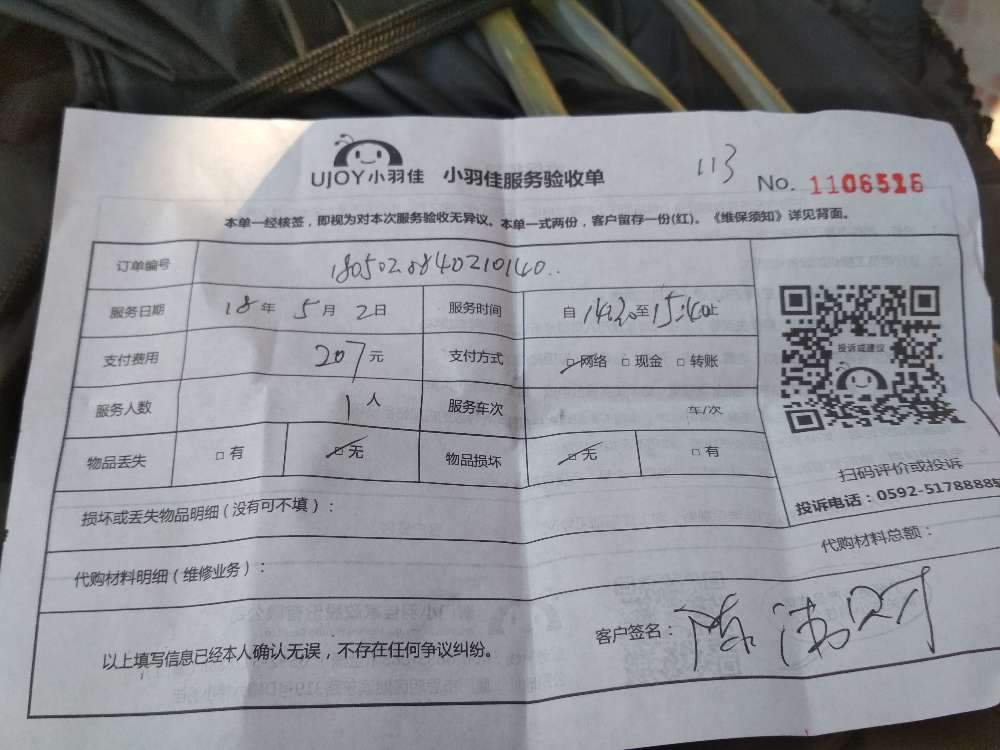 UJOY小羽佳 小羽佳服务验收单 113 No. 1106526
本单一经核签，即视为对本次服务验收无异议。本单一式两份，客户留存一份(红)。《维保须知》详见背面。
订单编号 1805020840210140..
服务日期 18年 5月 2日 服务时间 自 14:20至15:40止
支付费用 207元 支付方式 □网络 □现金 □转账
投诉或建议
服务人数 1人 服务车次 车/次
物品丢失 □有 □无 物品损坏 □无 □有
扫码评价或投诉
投诉电话：0592-5178888转
损坏或丢失物品明细（没有可不填）：
代购材料明细（维修业务）： 代购材料总额：
以上填写信息已经本人确认无误，不存在任何争议纠纷。 客户签名：陈